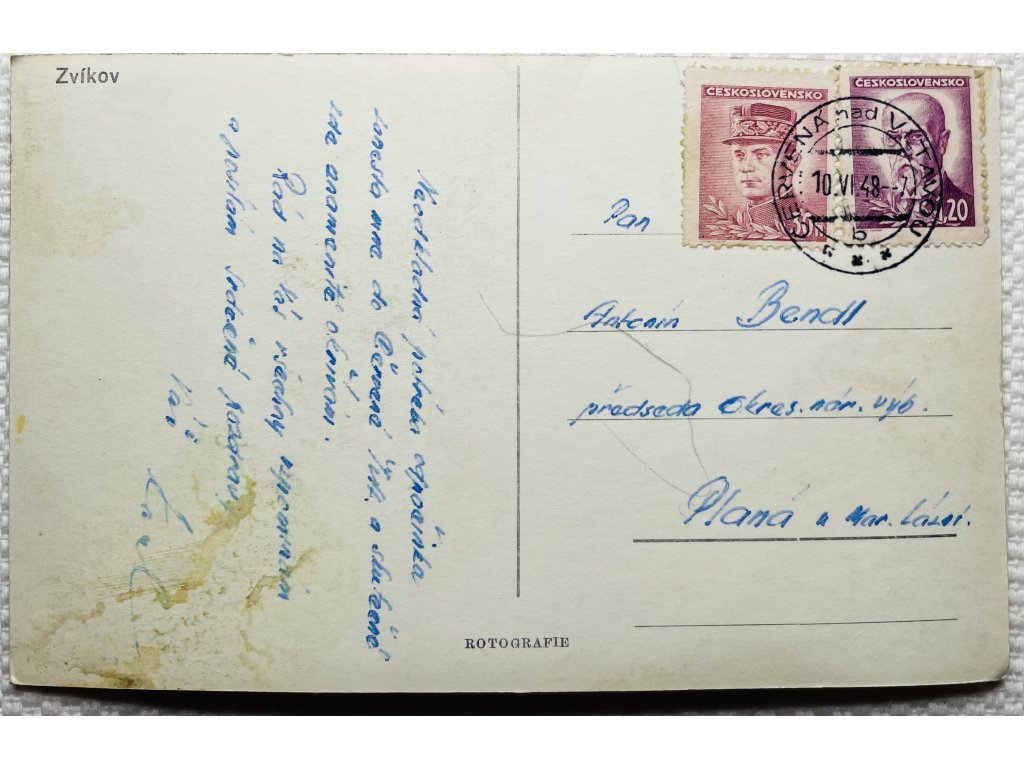 Zvíkov
Neodkladná potřeba odpočinku
zanesla mne do Červené n/Vlt. a skutečně
zde znamenitě okřívám.
Rád na Vás všechny vzpomínám
a posílám srdečné pozdravy
Váš
ČESKOSLOVENSKO
ČESKOSLOVENSKO
1,20
ČERVENÁ nad VLTAVOU
10.VI.48
b
Pan
Antonín Bendl
předseda Okres. nár. výb.
Planá u Mar. Lázní.
ROTOGRAFIE